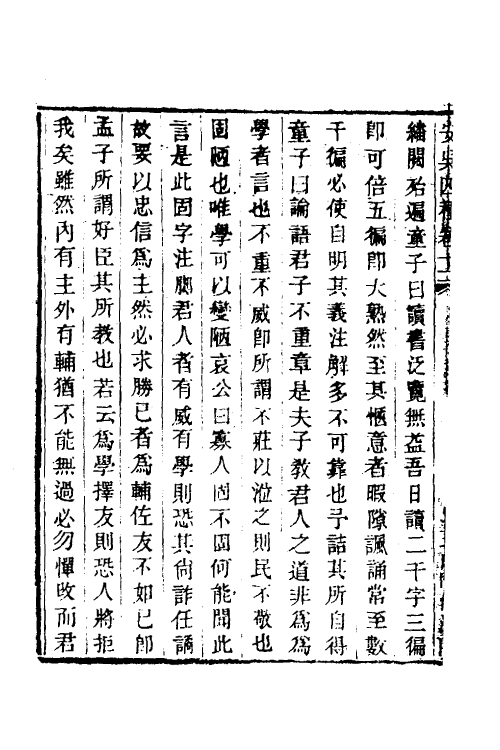 繙閱殆遍童子曰讀書泛覽無益吾日讀二千字三徧
卽可倍五徧卽大熟然至其愜意者暇隙諷誦常至數
千徧必使自明其義注解多不可靠也予詰其所自得
童子曰論語君子不重章是夫子敎君人之道非爲爲
學者言也不重不威卽所謂不莊以涖之則民不敬也
固陋也唯學可以變陋哀公曰寡人固不固何能聞此
言是此固字注腳君人者有威有學則恐其尙詐任譎
故要以忠信爲主然必求勝已者爲輔佐友不如已卽
孟子所謂好臣其所敎也若云爲學擇友則恐人將拒
我矣雖然內有主外有輔猶不能無過必勿憚改而君